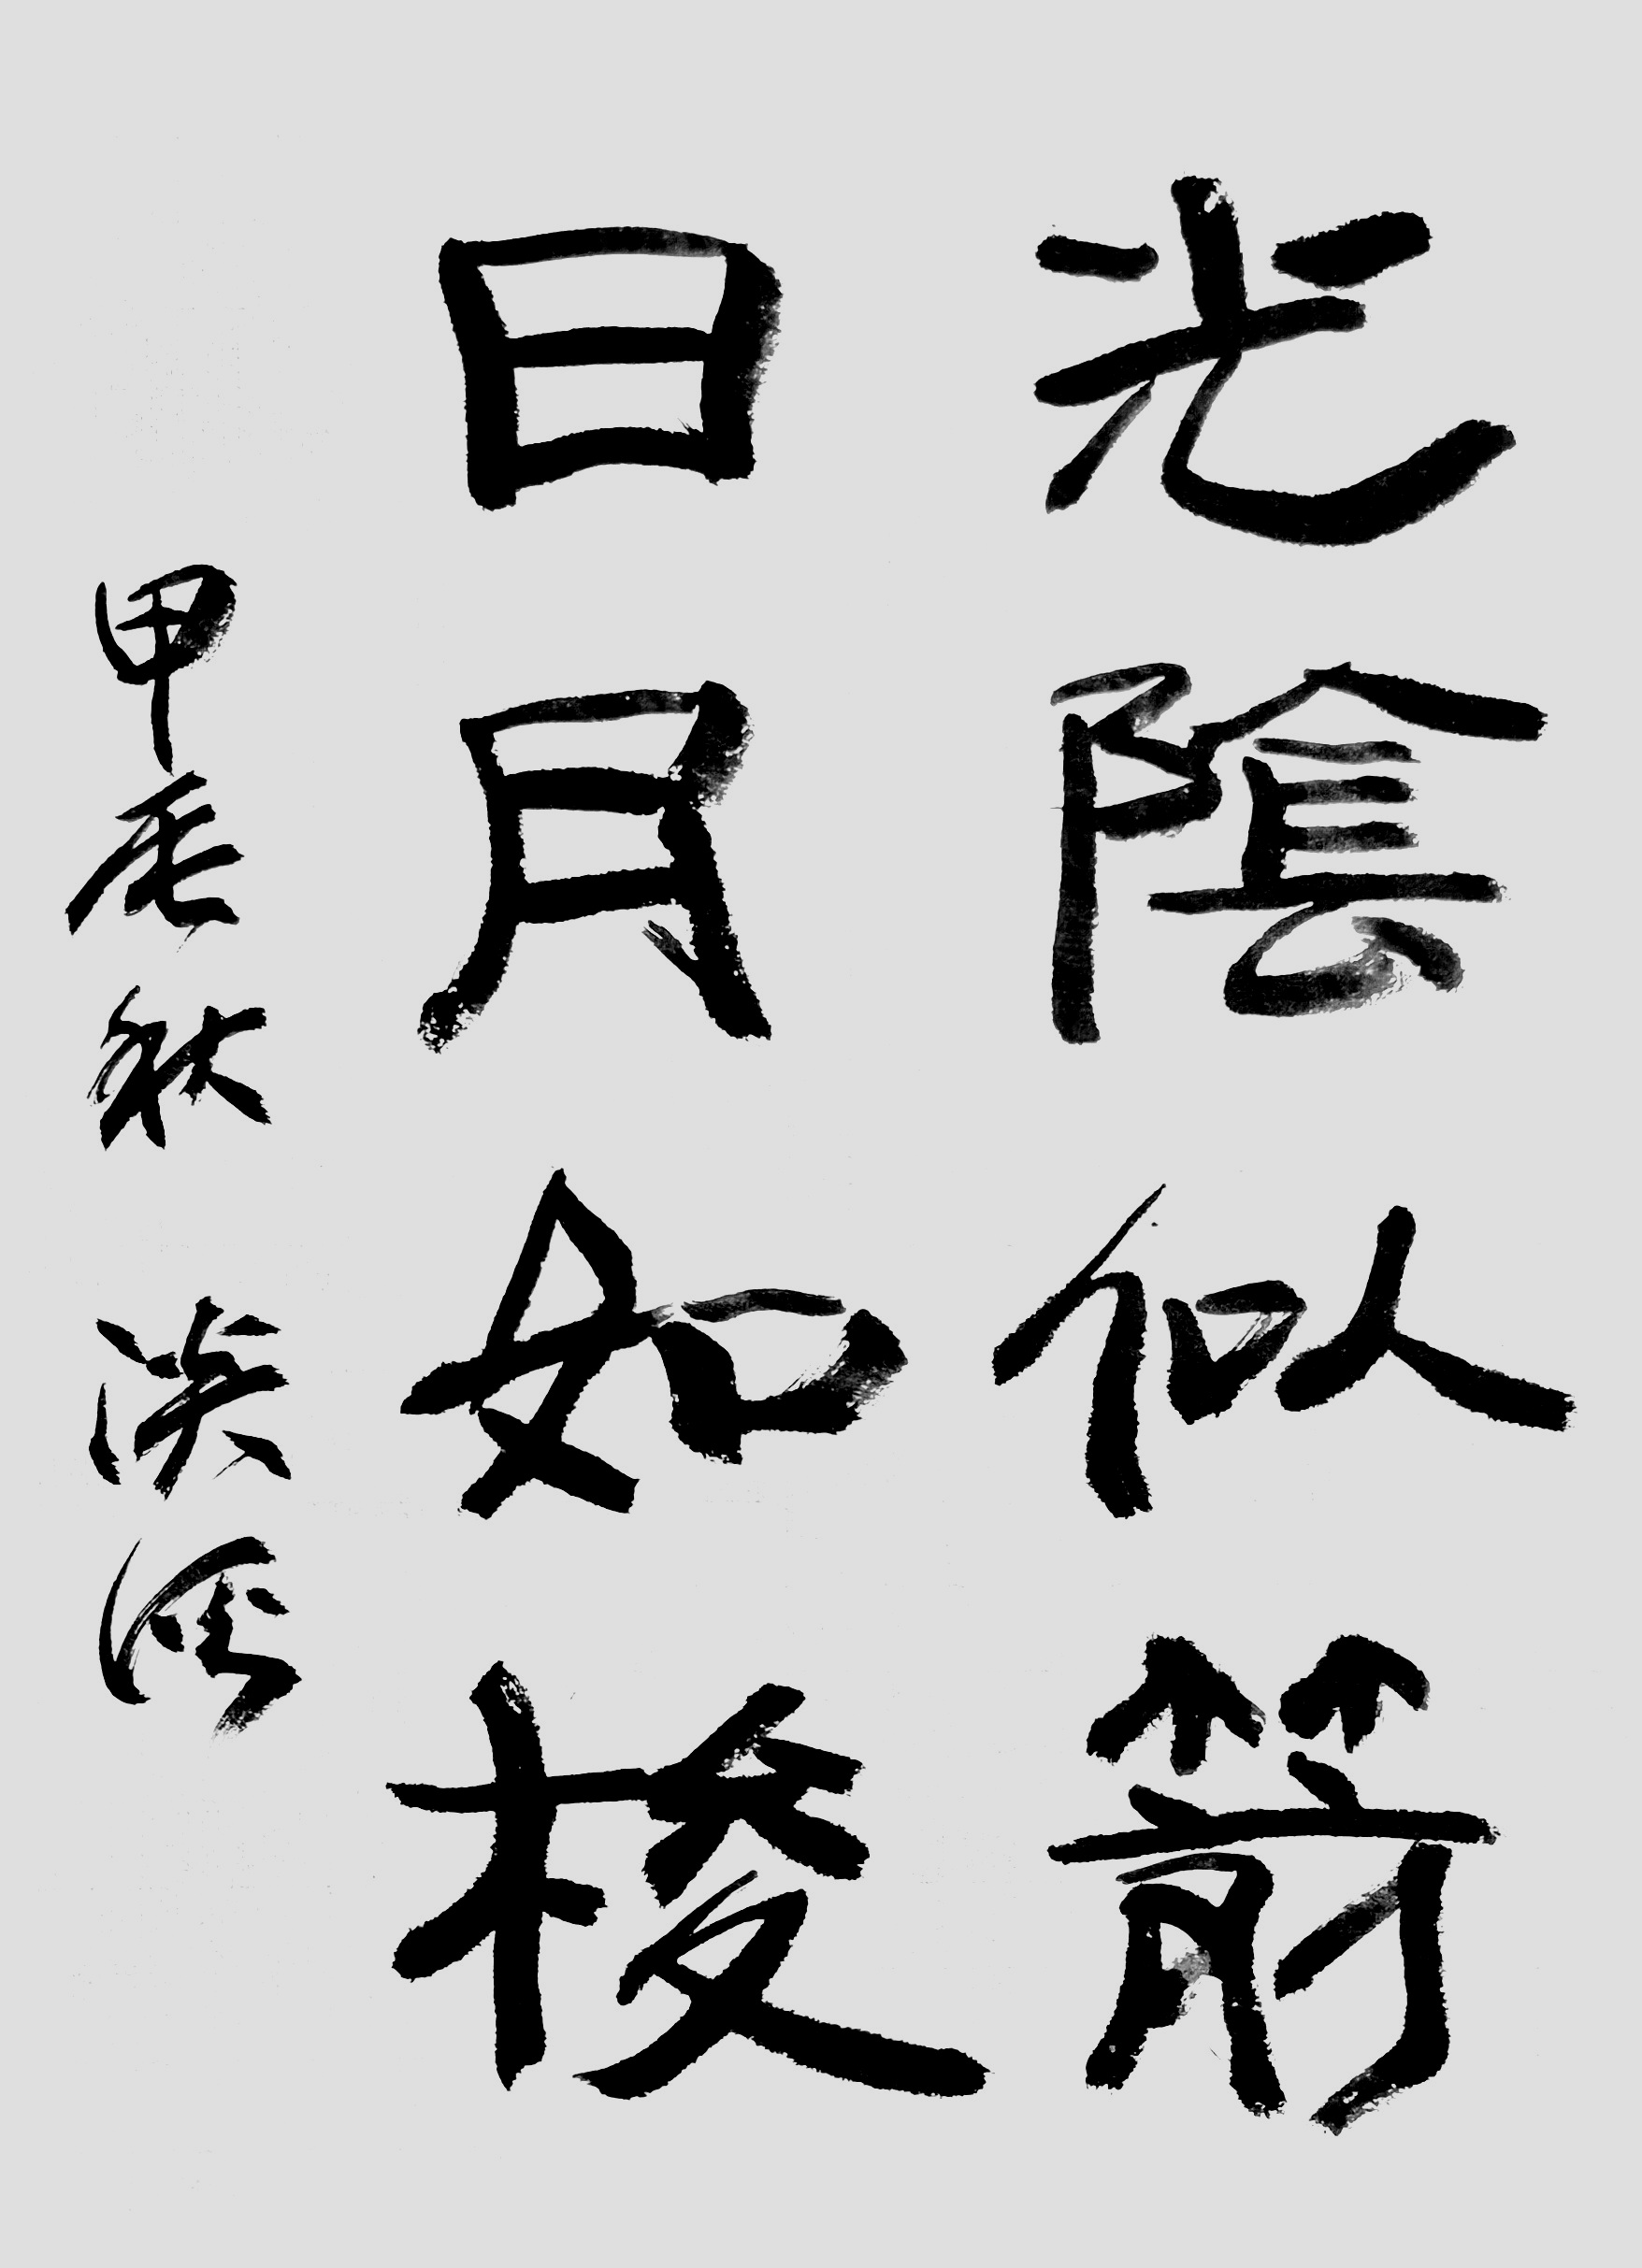 光陰似箭
日月如梭
甲辰秋